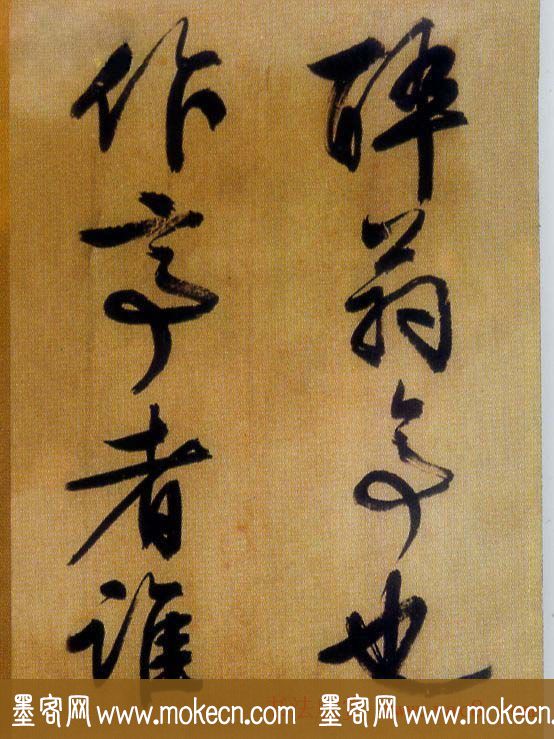 醉翁亭也
作亭者誰
墨客网 www.mokecn.com 墨客网 www.mokecn.com